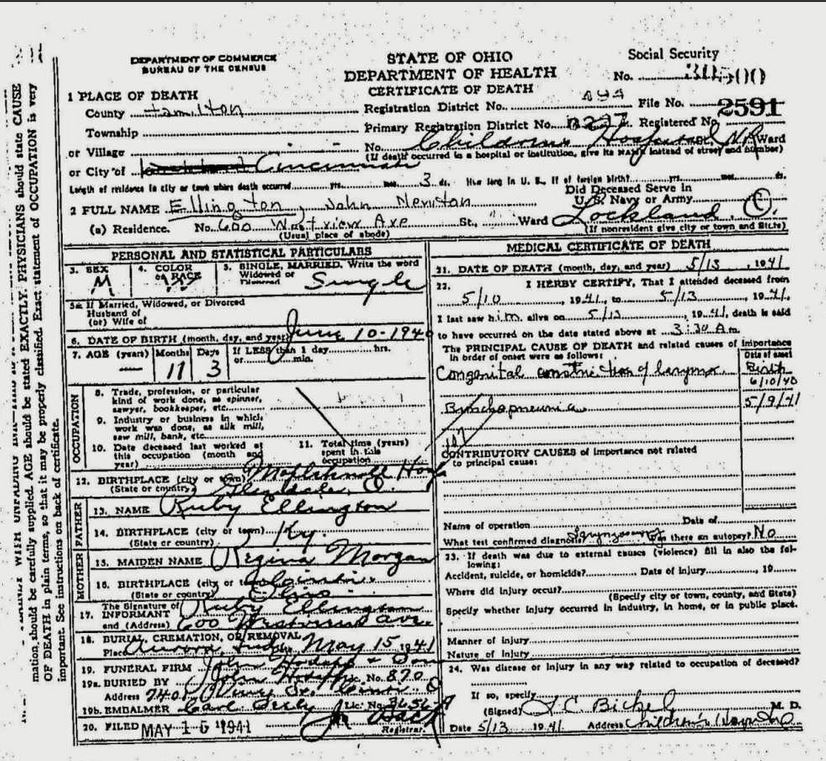 DEPARTMENT OF COMMERCE
BUREAU OF THE CENSUS
STATE OF OHIO
DEPARTMENT OF HEALTH
CERTIFICATE OF DEATH
Social Security
No.
1 PLACE OF DEATH
County Hamilton
Registration District No. File No. 2591
Township
Primary Registration District No. Registered No.
or Village
No. Childrens Hospital Ward
(If death occurred in a hospital or institution, give its NAME instead of street and number)
or City of Cincinnati
Length of residence in city or town where death occurred yrs. mos. 3 ds. How long in U. S., if of foreign birth? yrs. mos. ds.
Did Deceased Serve in
U. S. Navy or Army
2 FULL NAME Ellington, John Newton
(a) Residence. No. 600 Westview Ave St., Ward Lockland, O.
(Usual place of abode) (If nonresident give city or town and State)
PERSONAL AND STATISTICAL PARTICULARS
3. SEX M
4. COLOR or RACE
5. SINGLE, MARRIED, Write the word
Widowed or
Divorced Single
5a If Married, Widowed, or Divorced
Husband of
(or) Wife of
6. DATE OF BIRTH (month, day, and year) June 10-1940
7. AGE (years) — Months 11 Days 3 If LESS than 1 day hrs.
or min.
OCCUPATION
8. Trade, profession, or particular
kind of work done, as spinner,
sawyer, bookkeeper, etc.
9. Industry or business in which
work was done, as silk mill,
saw mill, bank, etc.
10. Date deceased last worked at
this occupation (month and
year)
11. Total time (years)
spent in this
occupation
12. BIRTHPLACE (city or town) Mapleknoll Hosp
(State or country) Glendale, O.
FATHER
13. NAME Ruby Ellington
14. BIRTHPLACE (city or town) Ky.
(State or country)
MOTHER
15. MAIDEN NAME Regina Morgan
16. BIRTHPLACE (city or town)
(State or country) Ohio
17. The Signature of
INFORMANT Ruby Ellington
and (Address) 600 Westview Ave.
18. BURIAL, CREMATION, OR REMOVAL
Place Aurora Ind May 15 1941
19. FUNERAL FIRM John Hodapp & Sons
19a. BURIED BY John Hodapp No. 870
Address
19b. EMBALMER Carl Lic. No.
20. FILED MAY 15 1941 Registrar.
MEDICAL CERTIFICATE OF DEATH
21. DATE OF DEATH (month, day, and year) 5/13 1941
22. I HERBY CERTIFY, That I attended deceased from
5/10, 1941, to 5/13, 1941.
I last saw him alive on 5/13, 1941, death is said
to have occurred on the date stated above at 3:30 A.m.
The PRINCIPAL CAUSE OF DEATH and related causes of importance
in order of onset were as follows: Date of onset
Congenital constriction of larynx Birth
6/10/40
Bronchopneumonia 5/9/41
CONTRIBUTORY CAUSES of importance not related
to principal cause:
Name of operation Date of
What test confirmed diagnosis? Was there an autopsy? No
23. If death was due to external causes (violence) fill in also the fol-
lowing:
Accident, suicide, or homicide? Date of injury, 19
Where did injury occur?
(Specify city or town, county, and State)
Specify whether injury occurred in industry, in home, or in public place.
Manner of Injury
Nature of Injury
24. Was disease or injury in any way related to occupation of deceased?
If so, specify
(Signed) C. Bickel M. D.
Date 5/13 1941. Address Children's
mation, should be carefully supplied. AGE should be stated EXACTLY. PHYSICIANS should state CAUSE
OF DEATH in plain terms, so that it may be properly classified. Exact statement of OCCUPATION is very
important. See instructions on back of certificate.